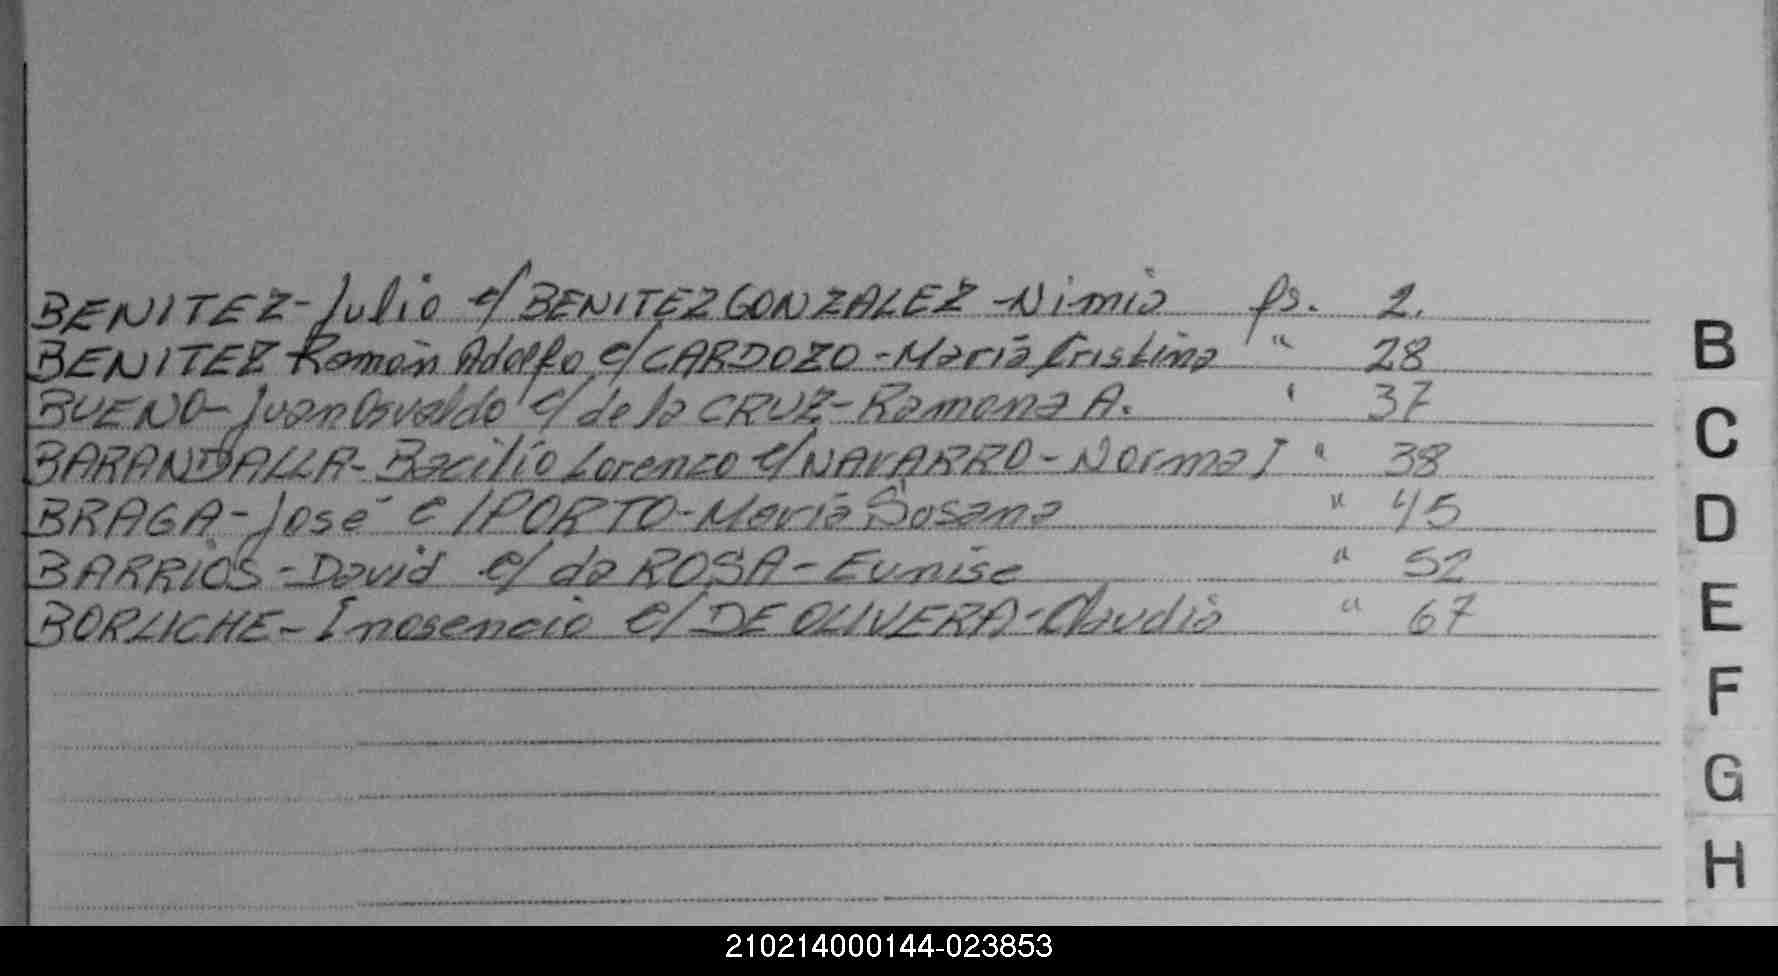 BENITEZ-Julio c/ BENITEZ GONZALEZ-Nimia fs. 2.
BENITEZ Ramón Adolfo c/ CARDOZO-María Cristina " 28
BUENO-Juan Osvaldo c/ de la CRUZ-Ramona A. " 37
BARANDALLA-Bacilio Lorenzo c/ NAVARRO-Norma I " 38
BRAGA-José c/ PORTO-María Susana " 45
BARRIOS-David c/ da ROSA-Eunise " 52
BORLICHE-Inosencio c/ DE OLIVERA-Claudia " 67
B
C
D
E
F
G
H
210214000144-023853